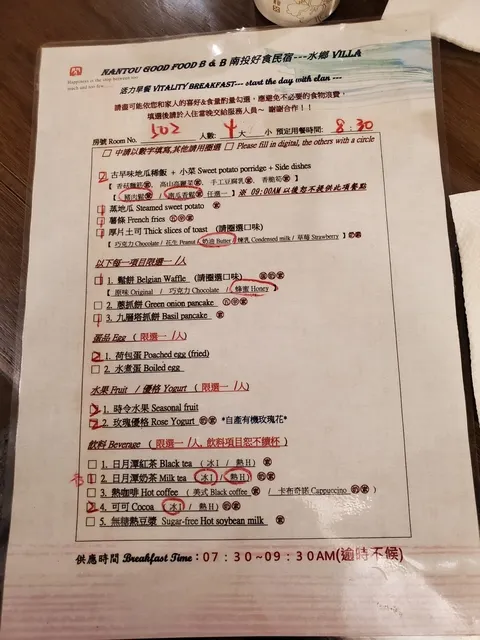 NANTOU GOOD FOOD B & B 南投好食民宿---水鄉 VILLA
活力早餐 VITALITY BREAKFAST--- start the day with elan ---
請盡可能依您和家人的喜好&食量酌量勾選，應避免不必要的食物浪費，
填選後請於入住當晚交給服務人員~ 謝謝合作！！
房號 Room No. 502 人數: 4 大 小 預定用餐時間: 8:30
□ 中請以數字填寫,其他請用圈選 □ Please fill in digital, the others with a circle
2 古早味地瓜稀飯 + 小菜 Sweet potato porridge + Side dishes
※ 09:00AM 以後恕不提供此項餐點
蒸地瓜 Steamed sweet potato
薯條 French fries
厚片土司 Thick slices of toast (請圈選口味)
【巧克力 Chocolate / 花生 Peanut / 奶油 Butter / 煉乳 Condensed milk / 草莓 Strawberry】
以下每一項目限選一/人
1. 鬆餅 Belgian Waffle (請圈選口味)
【原味 Original / 巧克力 Chocolate / 蜂蜜 Honey
□ 2. 蔥抓餅 Green onion pancake
3. 九層塔抓餅 Basil pancake
蛋品 Egg ( 限選一 /人)
2 1. 荷包蛋 Poached egg (fried)
□ 2. 水煮蛋 Boiled egg
水果 Fruit / 優格 Yogurt ( 限選一 /人)
1. 時令水果 Seasonal fruit
2 2. 玫瑰優奶 Rose Yogurt *自產有機玫瑰花*
飲料 Beverage ( 限選一 /人, 飲料項目恕不續杯 )
□ 1. 日月潭紅茶 Black tea ( 冰 I / 熱 H )
2. 日月潭奶茶 Milk tea ( 冰 I / 熱 H )
□ 3. 熱咖啡 Hot coffee ( 美式 Black coffee / 卡布奇諾 Cappuccino )
2 4. 可可 Cocoa ( 冰 I / 熱 H )
□ 5. 無糖熱豆漿 Sugar-free Hot soybean milk
供應時間 Breakfast Time : 07：30~09：30AM(逾時不候)